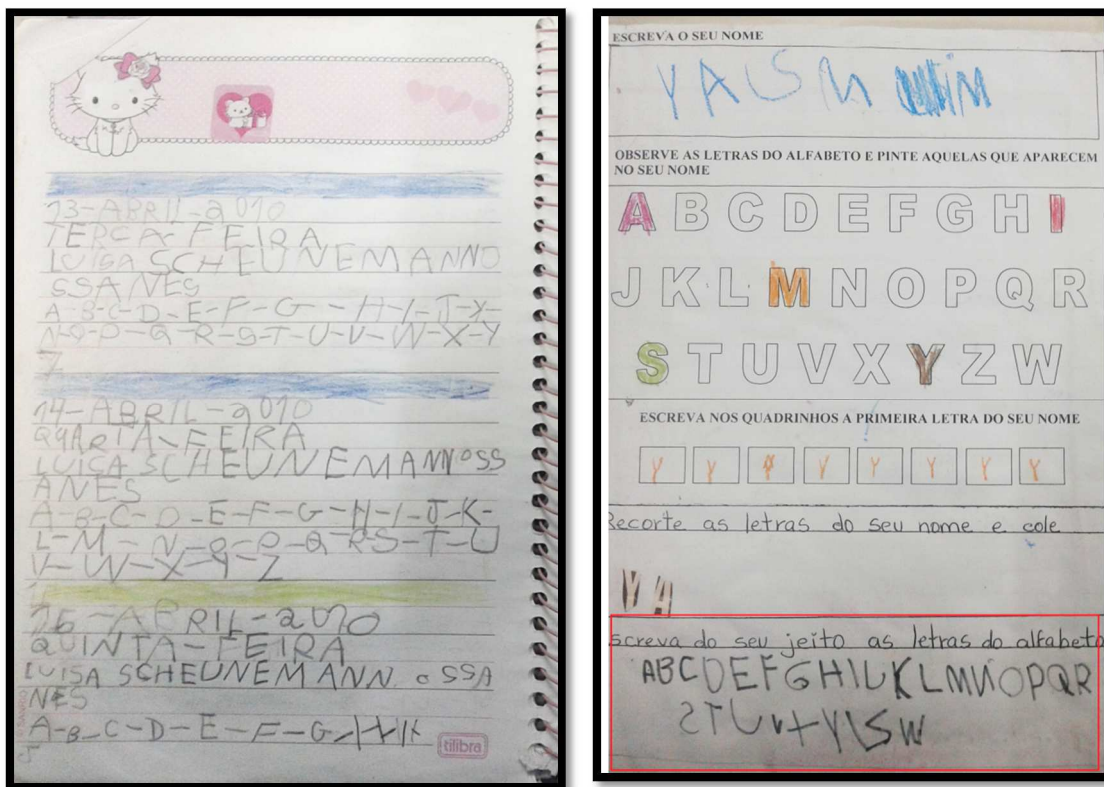 13-ABRIL-2010
TERCA-FEIRA
LUISA SCHEUNEMANNO
SSANES
A-B-C-D-E-F-G-H-I-J-X-
N-O-P-Q-R-S-T-U-V-W-X-Y
Z
14-ABRIL-2010
QUARTA-FEIRA
LUISA SCHEUNEMANNOSS
ANES
A-B-C-D-E-F-G-H-I-J-K-
L-M-N-O-P-Q-RS-T-U
V-W-X-Y-Z
16-APRIL-2010
QUINTA-FEIRA
LUISA SCHEUNEMANN. OSSA
NES
A-B-C-D-E-F-G-
J
tilibra
ESCREVA O SEU NOME
YASM IM
OBSERVE AS LETRAS DO ALFABETO E PINTE AQUELAS QUE APARECEM
NO SEU NOME
A B C D E F G H I
J K L M N O P Q R
S T U V X Y Z W
ESCREVA NOS QUADRINHOS A PRIMEIRA LETRA DO SEU NOME
Y Y Y Y Y Y Y
Recorte as letras do seu nome e cole
screva do seu jeito as letras do alfabeto
ABCDEFGHIJKLMNOPQR
STUVXYZSW